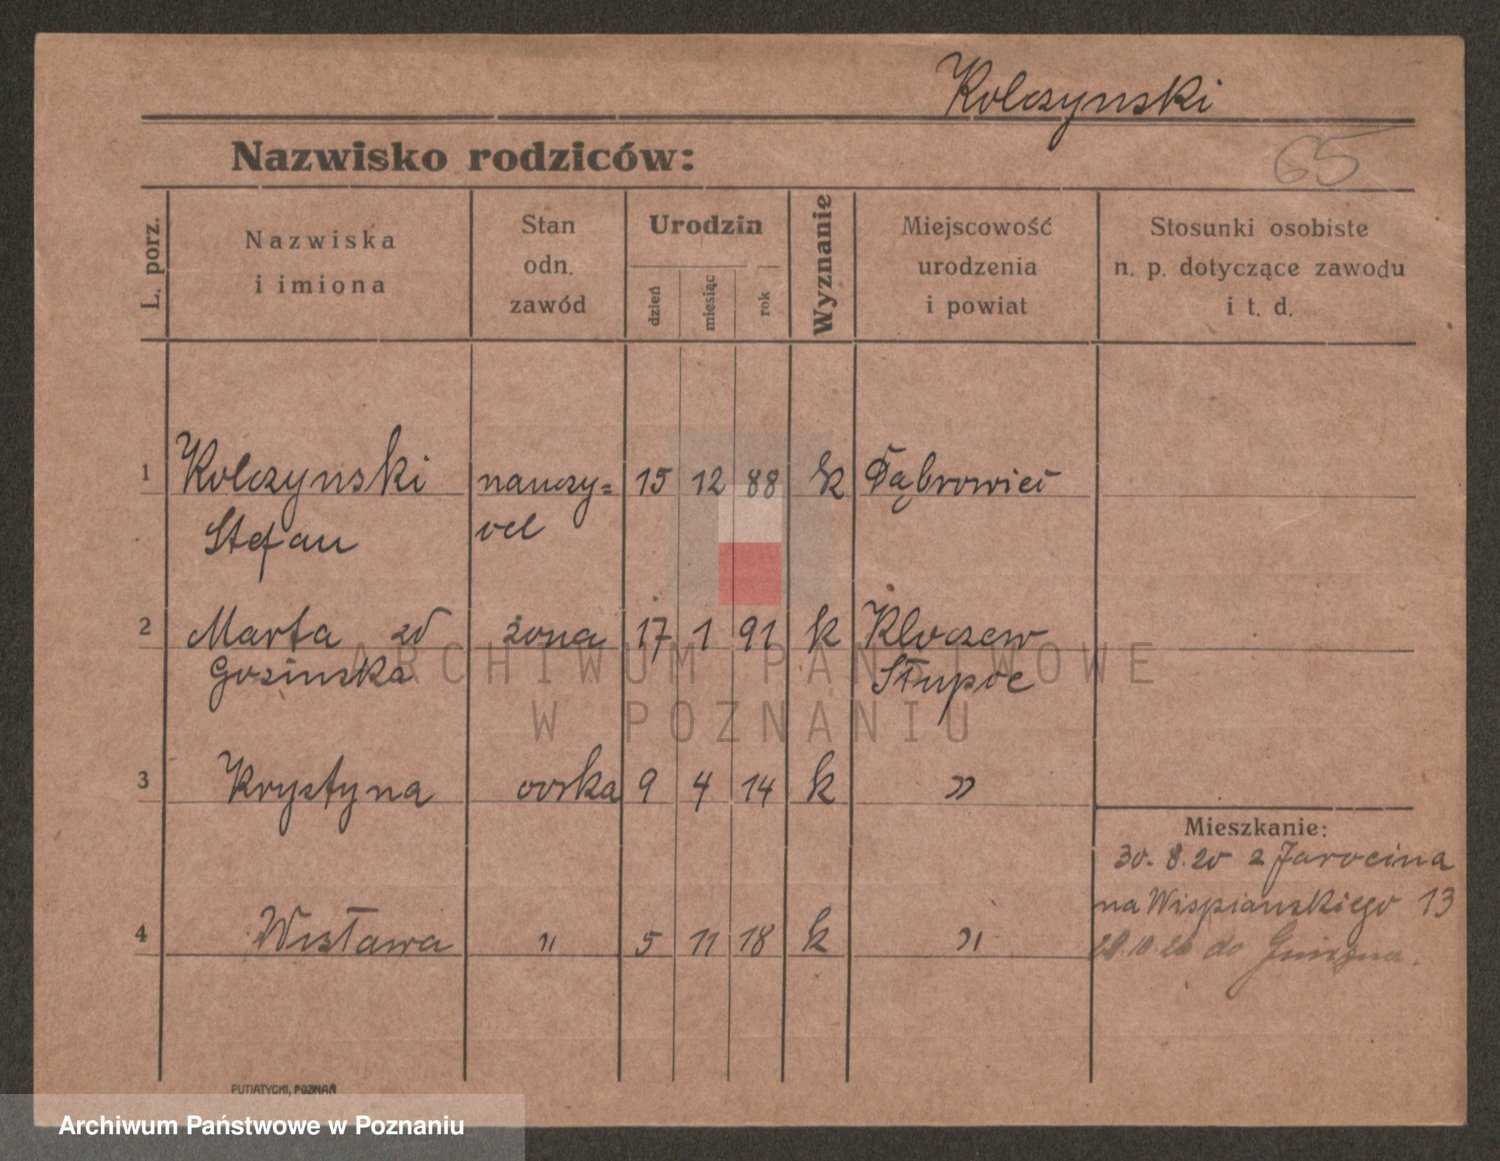 Kolczynski
65
Nazwisko rodziców:
L. porz.
Nazwiska
i imiona
Stan
odn.
zawód
Urodzin
dzień
miesiąc
rok
Wyznanie
Miejscowość
urodzenia
i powiat
Stosunki osobiste
n. p. dotyczące zawodu
i t. d.
1 Kolczynski nauczy= 15 12 88 k Dąbrowiec
Stefan ciel
2 Marta zd żona 17 1 91 k Kloczew
Gozinska Słupce
3 Krystyna córka 9 4 14 k "
4 Wisława " 5 11 18 k "
Mieszkanie:
30. 8. 20 z Jarocina
na Wispianskiego 13
do Gniezna.
PUTIATYCKI, POZNAŃ
ARCHIWUM PAŃSTWOWE
W POZNANIU
Archiwum Państwowe w Poznaniu